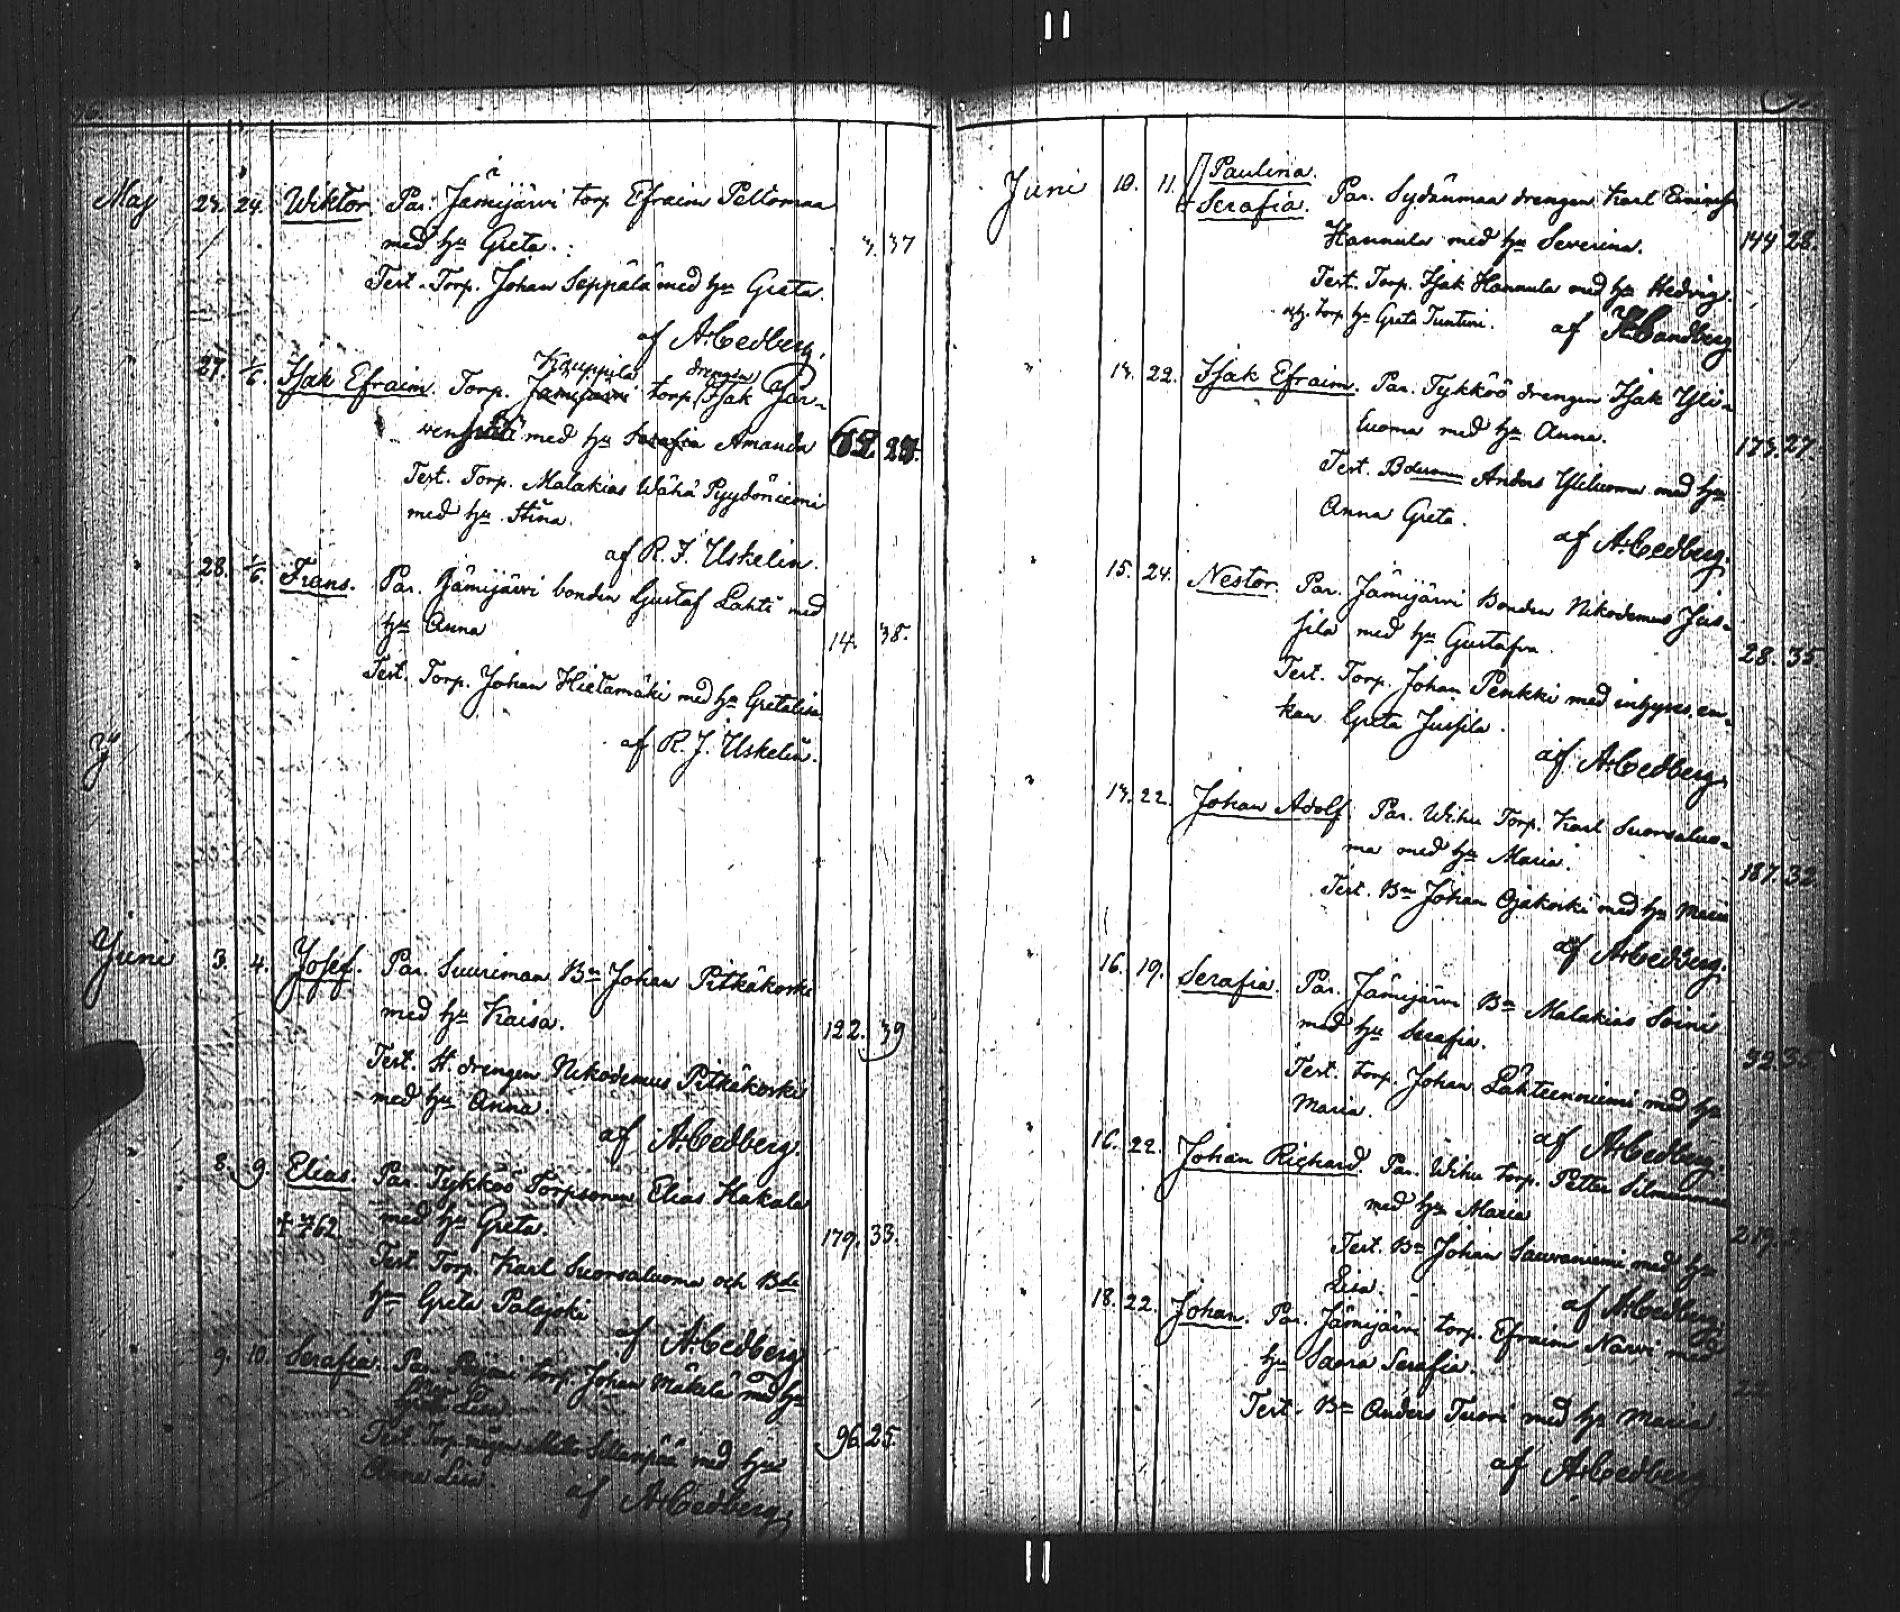 Maj 23. 24. Wiktor. Par. Jämijärvi torp Efraim Peltomaa
med hu Greta. 3. 37
Test. Torp. Johan Seppälä med hu Greta.
af A. Cedberg.
Kauppila drengen
" 27. 1/6. Isak Efraim. Torp. Jämijärvi torp. Isak Jär-
venpää med hu Serafia Amanda
Test. Torp. Malakias Wähä Pyydöniemi
med hu Stina.
af R. J. Uskelin.
" 28. 1/6. Frans. Par. Jämijärvi bonden Gustaf Lahti med
hu Anna 14. 38.
Test. Torp. Johan Hietamäki med hu Gretalisa
af R. J. Uskelin.
Juni 3. 4. Josef. Par. Suurimaa Bn Johan Pitkäkoski
med hu Kaisa. 122. 39
Test. H. drengen Nikodemus Pitkäkoski
med hu Anna.
af A. Cedberg.
" 8. 9. Elias. Par. Tykköö Torpsonen Elias Hakala
† 762 med hu Greta. 179. 33.
Test. Torp. Karl Suorsaluoma och Bde
hu Greta Palojoki
af A. Cedberg
" 9. 10. Serafia. Par. torp. Johan Mäkelä med hu
Lisa 96. 25.
Test. Torp. med hu
Anna Lisa.
af A. Cedberg.
Juni 10. 11. Paulina.
Serafia. Par. Sydänmaa drengen Karl
Hannula med hu Severina. 144. 28.
Test. Torp. Isak Hannula med hu Hedvig.
torp. hu Greta Tunturi. af Sandberg
" 13. 22. Isak Efraim. Par. Tykköö drengen Isak Yli-
luoma med hu Anna. 173. 27.
Test. Bdesonen Anders Yliluoma med hu
Anna Greta.
af A. Cedberg.
" 15. 24. Nestor. Par. Jämijärvi Bonden Nikodemus Jus-
sila med hu Gustafva. 28. 35.
Test. Torp. Johan Penkki med inhyses en-
kan Greta Jussila.
af A. Cedberg.
" 13. 22. Johan Adolf. Par. Wihu Torp. Karl Suorsaluo-
ma med hu Maria. 187. 32
Test. Bn Johan Ojakoski med hu Maria
af A. Cedberg.
" 16. 19. Serafia. Par. Jämijärvi Bn Malakias Soini
med hu Serafia.
Test. torp. Johan Lähteenniemi med hu
Maria.
af A. Cedberg.
" 16. 22. Johan Richard. Par. Wihu torp. Petter Silmunmaa
med hu Maria
Test. Bn Johan Sauvaniemi med hu
Lisa. af A. Cedberg.
" 18. 22. Johan. Par. Jämijärvi torp. Efraim Narvi med
hu Saara Serafia.
Test. Bn Anders Tuori med hu Maria.
af A. Cedberg